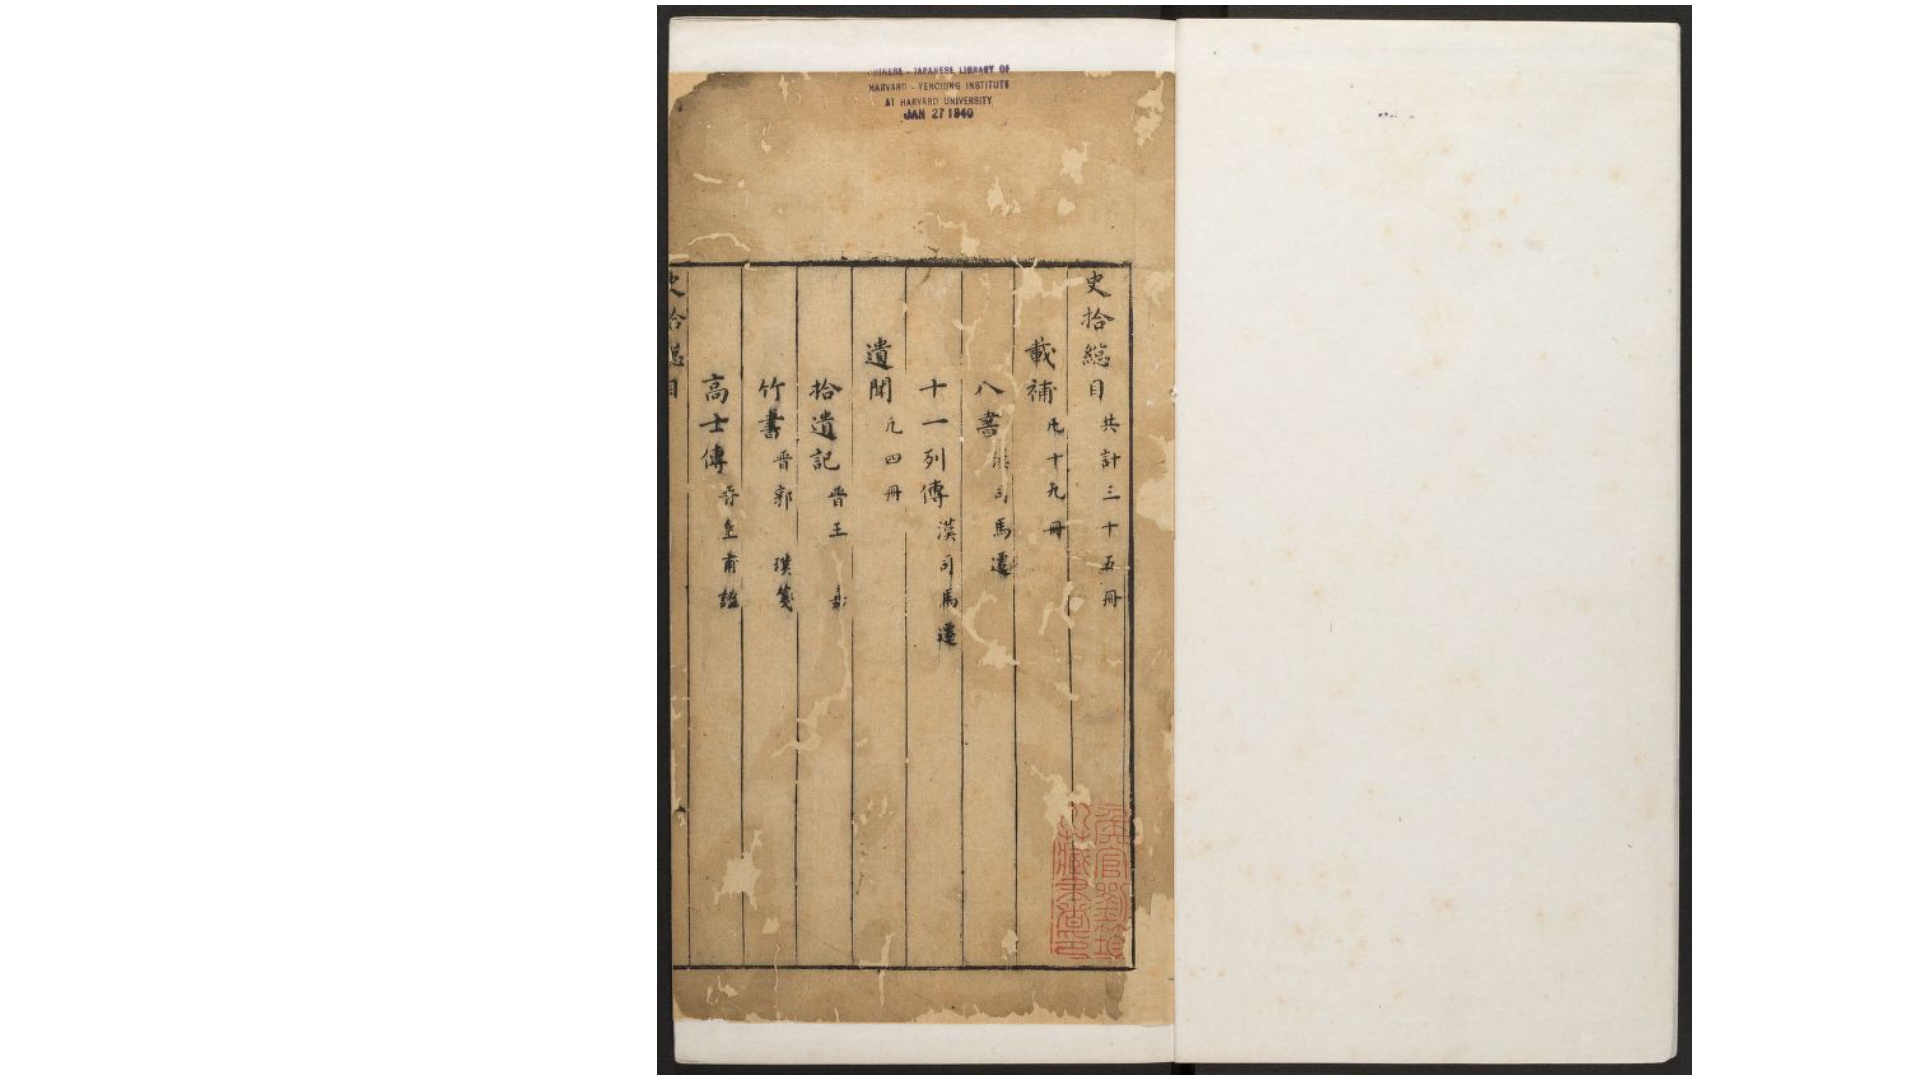 CHINESE - JAPANESE LIBRARY OF
HARVARD - YENCHING INSTITUTE
AT HARVARD UNIVERSITY
JAN 27 1940
史拾總目 共計三十五冊
載補 凡十九冊
八書 漢司馬遷
十一列傳 漢司馬遷
遺聞 凡四冊
拾遺記 晉王嘉
竹書 晉郭璞箋
高士傳 晉皇甫謐
史拾總目